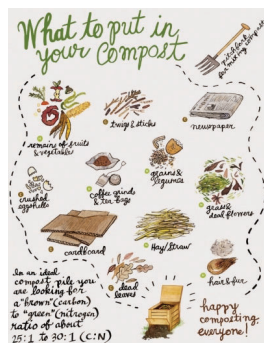 What to put in
your Compost
pitchfork
for mixing compost
remains of fruits
& vegetables
twigs & sticks
newspaper
crushed
eggshells
coffee grinds
& tea-bags
grains &
legumes
grass &
dead flowers
cardboard
Hay/Straw
hair & fur
dead
leaves
In an ideal
compost pile you
are looking for
a "brown" (carbon)
to "green" (nitrogen)
ratio of about
25:1 to 30:1 (C:N)
happy
composting,
everyone!